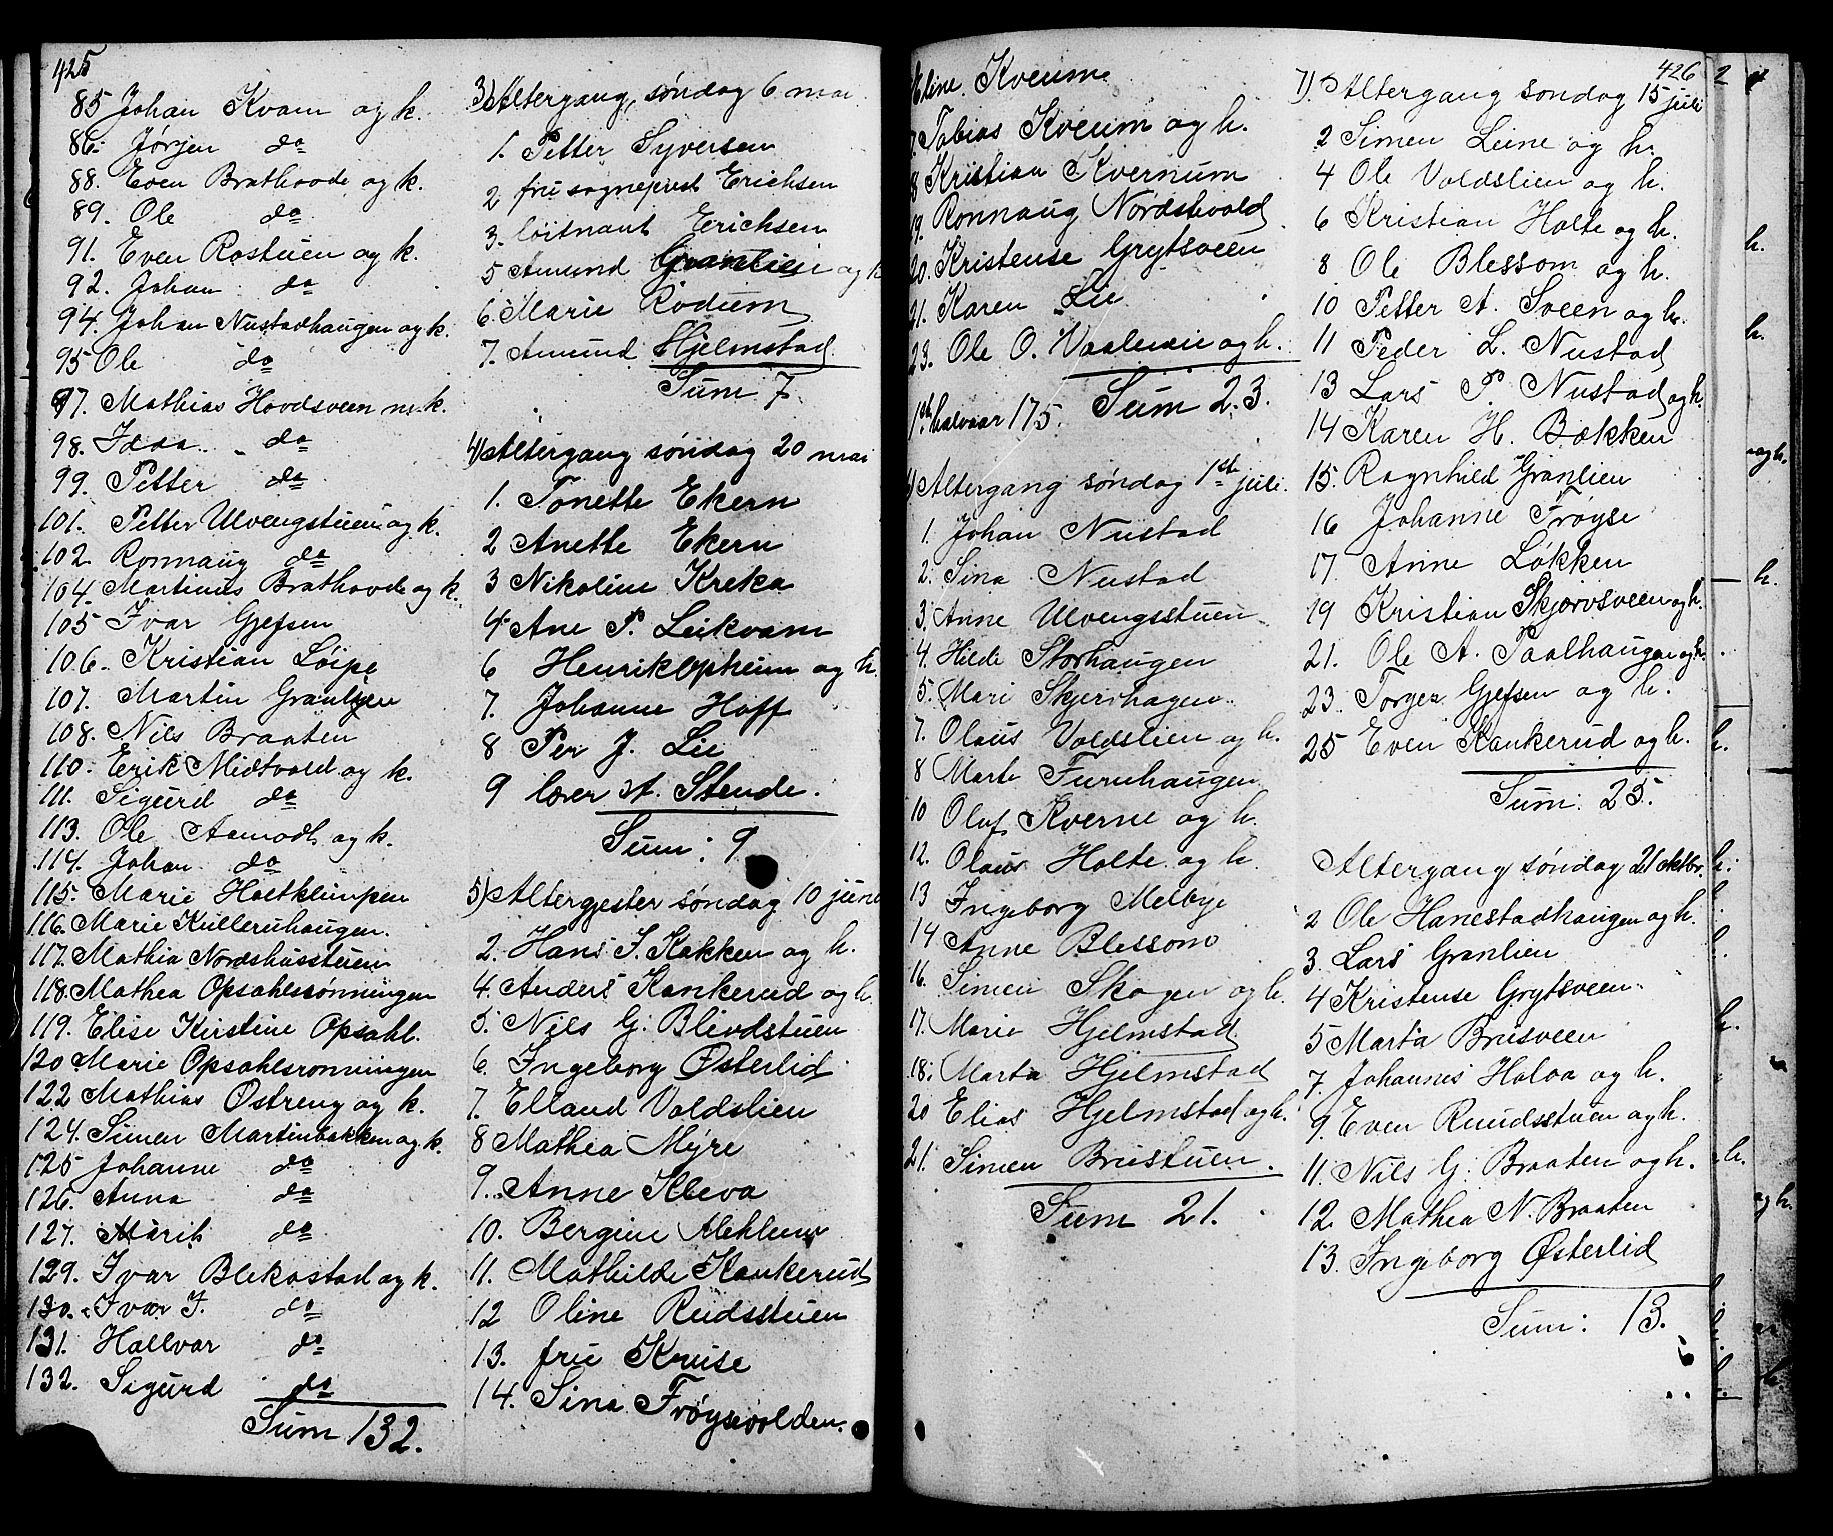 425
85 Johan Kvam og k.
86. Jørjen do
88. Even Brathovde og k.
89. Ole do
91. Even Rostuen og k.
92. Johan do
94. Johan Nustadhaugen og k.
95 Ole do
97. Mathias Hovdsveen m. k.
98. Idaa do
99. Petter do
101. Petter Ulvengstuen og k.
102. Ronnaug do
104. Martinus Brathovde og k.
105 Ivar Gjefsen
106. Kristian Løipe
107. Martin Granlien
108. Nils Braaten
110. Erik Midtvold og k.
111. Sigurd do
113. Ole Aamodt og k.
114. Johan do
115. Marie Holtklimpen
116. Marie Kulleruhaugen.
117. Mathia Nordshusstuen
118. Mathea Opsahlsrønningen
119. Elise Kirstine Opsahl.
120 Marie Opsahlsrønningen
122 Mathias Østreng og k.
124. Simen Martinbakken og k.
125 Johanne do
126. Anna do
127. Marit do
129. Ivar Blekastad og k.
130. Ivar J. do
131. Hallvar do
132. Sigurd do
Sum 132.
3) Altergang, søndag 6 mai
1. Petter Syversen
2 fru sogneprest Erichsen
3. løitnant Erichsen
5 Amund Granlien og k
6. Marie Rodum
7. Amund Hjelmstad
Sum 7.
4) Altergang søndag 20 mai
1. Tonette Ekern
2 Anette Ekern
3 Nikoline Kreka
4. Ane P. Leikvam
6 Henrik Opheim og h.
7. Johanne Hoff
8 Per J. Lie
9 lærer A. Stende.
Sum: 9
5) Altergjester søndag 10 juni
2. Hans J. Kakken og h.
4. Anders Kankerud og h.
5. Nils G. Blivdstuen
6. Ingeborg Østerlid
7. Elland Voldslien
8 Mathea Myre
9. Anne Kleva
10. Bergine Mehlum
11. Mathilde Kankerud
12 Oline Rudsstuen
13. fru Kruse
14. Sina Frøysevolden.
Eline Kveum
Tobias Kveum og h.
18 Kristian Kvernum
19. Ronnaug Nordshvold
20. Kristense Grytsveen
21. Karen Lie
23. Ole O. Vaalerie og h.
Sum 23.
1ste halvaar 175.
Altergang søndag 1ste juli.
1. Johan Nustad
2. Sina Nustad
3. Anne Ulvengsstuen
4. Hilde Storhaugen
5. Mari Skjerhagen
7. Olaus Voldslien og h.
8 Marte Furuhaugen
10 Oluf Kverne og h.
12. Olaus Holte og h.
13 Ingeborg Melbye
14 Anne Blessom
16. Simen Skogen og h.
17. Marie Hjelmstad
18. Marta Hjelmstad
20 Elias Hjelmstad og h.
21. Simen Brustuen.
Sum 21.
426
7). Altergang søndag 15 juli
2 Simen Leine og h.
4 Ole Voldslien og h.
6 Kristian Holte og h.
8 Ole Blessom og h.
10 Petter A. Sveen og h.
11 Peder L. Nustad
13 Lars P. Nustad og h.
14 Karen H. Bækken
15. Ragnhild Granlien
16 Johanne Frøyse
17 Anne Løkken
19 Kristian Skjørvsveen og h.
21. Ole A. Paalhaugen og h.
23. Torger Gjefsen og h.
25 Even Kankerud og h.
Sum: 25.
Altergang søndag 21 oktbr.
2 Ole Hanestadhaugen og h.
3. Lars Granlien
4 Kristense Grytsveen
5 Marta Brusveen
7 Johannes Holoa og h.
9. Even Ruudsstuen og h.
11. Nils G. Braaten og h.
12. Mathea N. Braaten
13. Ingeborg Østerlid
Sum: 13.